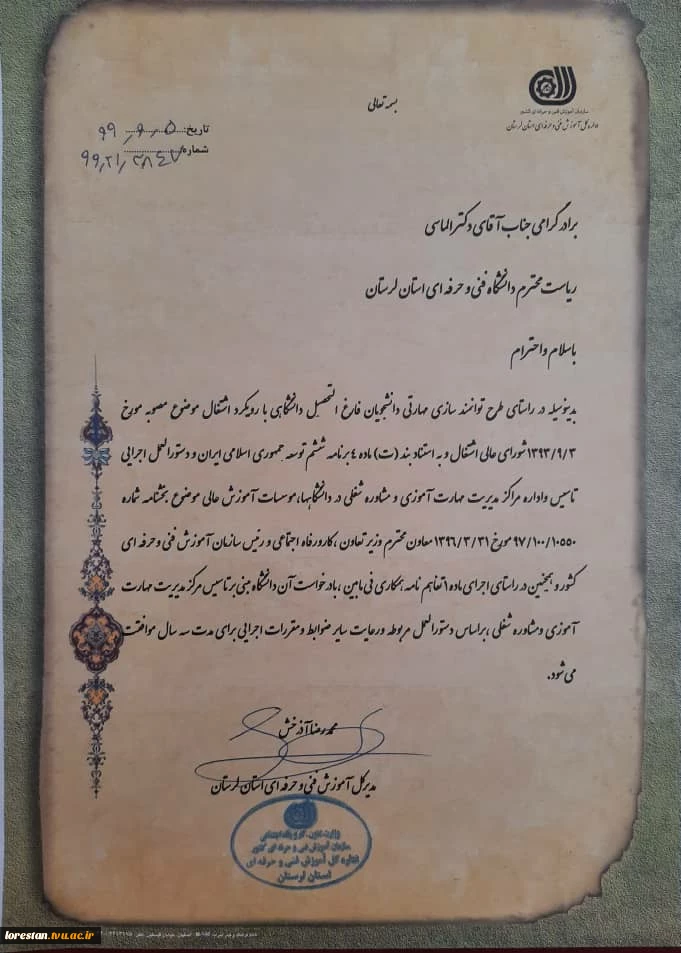 بسمه تعالی
سازمان آموزش فنی و حرفه ای کشور
اداره کل آموزش فنی و حرفه ای استان لرستان
تاریخ: ۹۹٫۹٫۵
شماره: ۹۹٫۲۱٫۲۸۴۷
برادر گرامی جناب آقای دکتر الماسی
ریاست محترم دانشگاه فنی و حرفه ای استان لرستان
باسلام و احترام
بدینوسیله در راستای طرح توانمند سازی مهارتی دانشجویان فارغ التحصیل دانشگاهی با رویکرد اشتغال موضوع مصوبه مورخ
۱۳۹۳/۹/۳ شورای عالی اشتغال و به استناد بند (ت) ماده ٤ برنامه ششم توسعه جمهوری اسلامی ایران و دستورالعمل اجرایی
تاسیس و اداره مراکز مدیریت مهارت آموزی و مشاوره شغلی در دانشگاهها، موسسات آموزش عالی موضوع بخشنامه شماره
۹۷/۱۰۰/۱۰۵۵۰ مورخ ۱۳۹٦/۳/۳۱ معاون محترم وزیر تعاون ، کار و رفاه اجتماعی و رئیس سازمان آموزش فنی و حرفه ای
کشور و همچنین در راستای اجرای ماده ۱ تفاهم نامه همکاری فی مابین ، با درخواست آن دانشگاه مبنی بر تاسیس مرکز مدیریت مهارت
آموزی و مشاوره شغلی ، براساس دستورالعمل مربوطه و رعایت سایر ضوابط و مقررات اجرایی برای مدت سه سال موافقت
می شود.
محمدرضا آذرخش
مدیرکل آموزش فنی و حرفه ای استان لرستان
وزارت تعاون، کار و رفاه اجتماعی
سازمان آموزش فنی و حرفه ای کشور
اداره کل آموزش فنی و حرفه ای
استان لرستان
lorestan.tvu.ac.ir